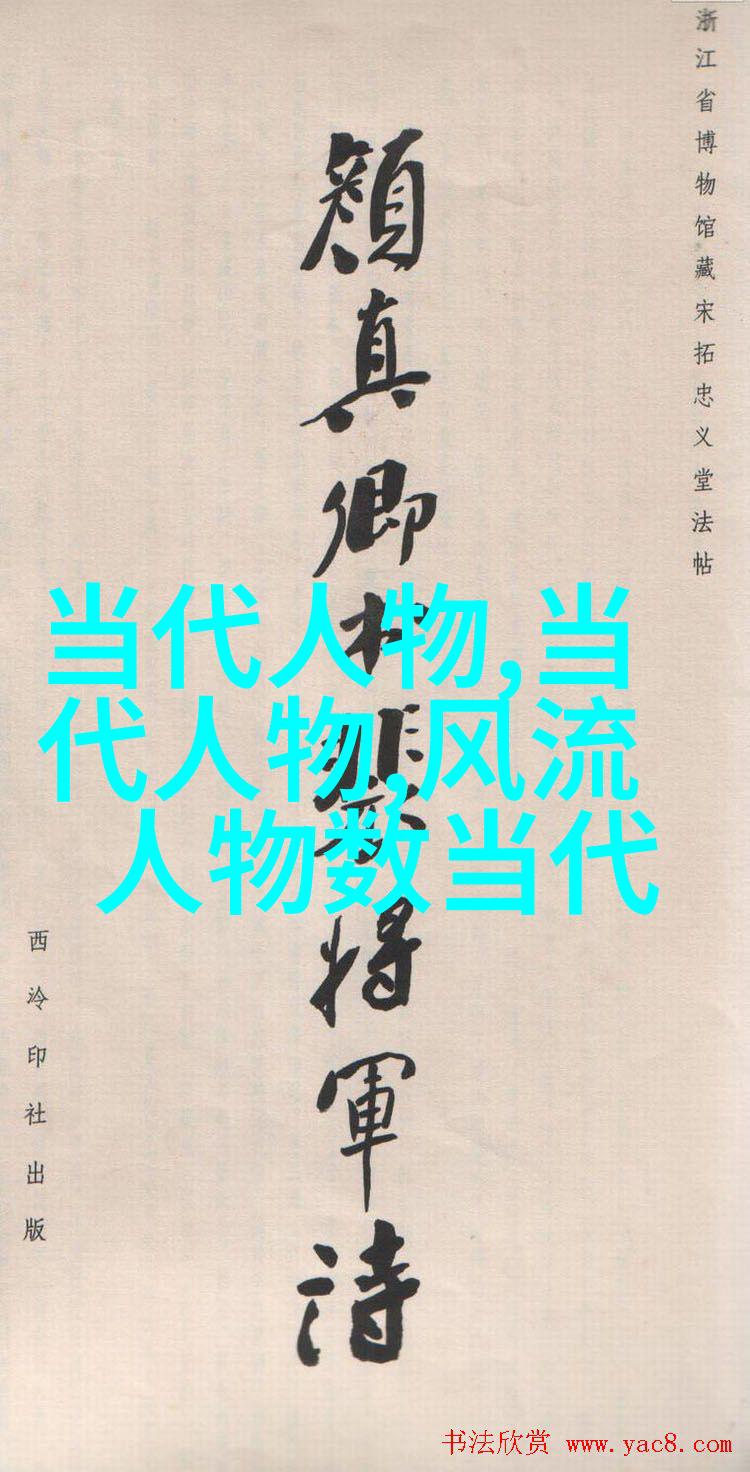 浙江省博物馆藏宋拓忠义堂法帖
顔真卿书裴将軍詩
当代人物,当
代人物,风流
人物数当代
西泠印社出版
书法欣赏 www.yac8.com